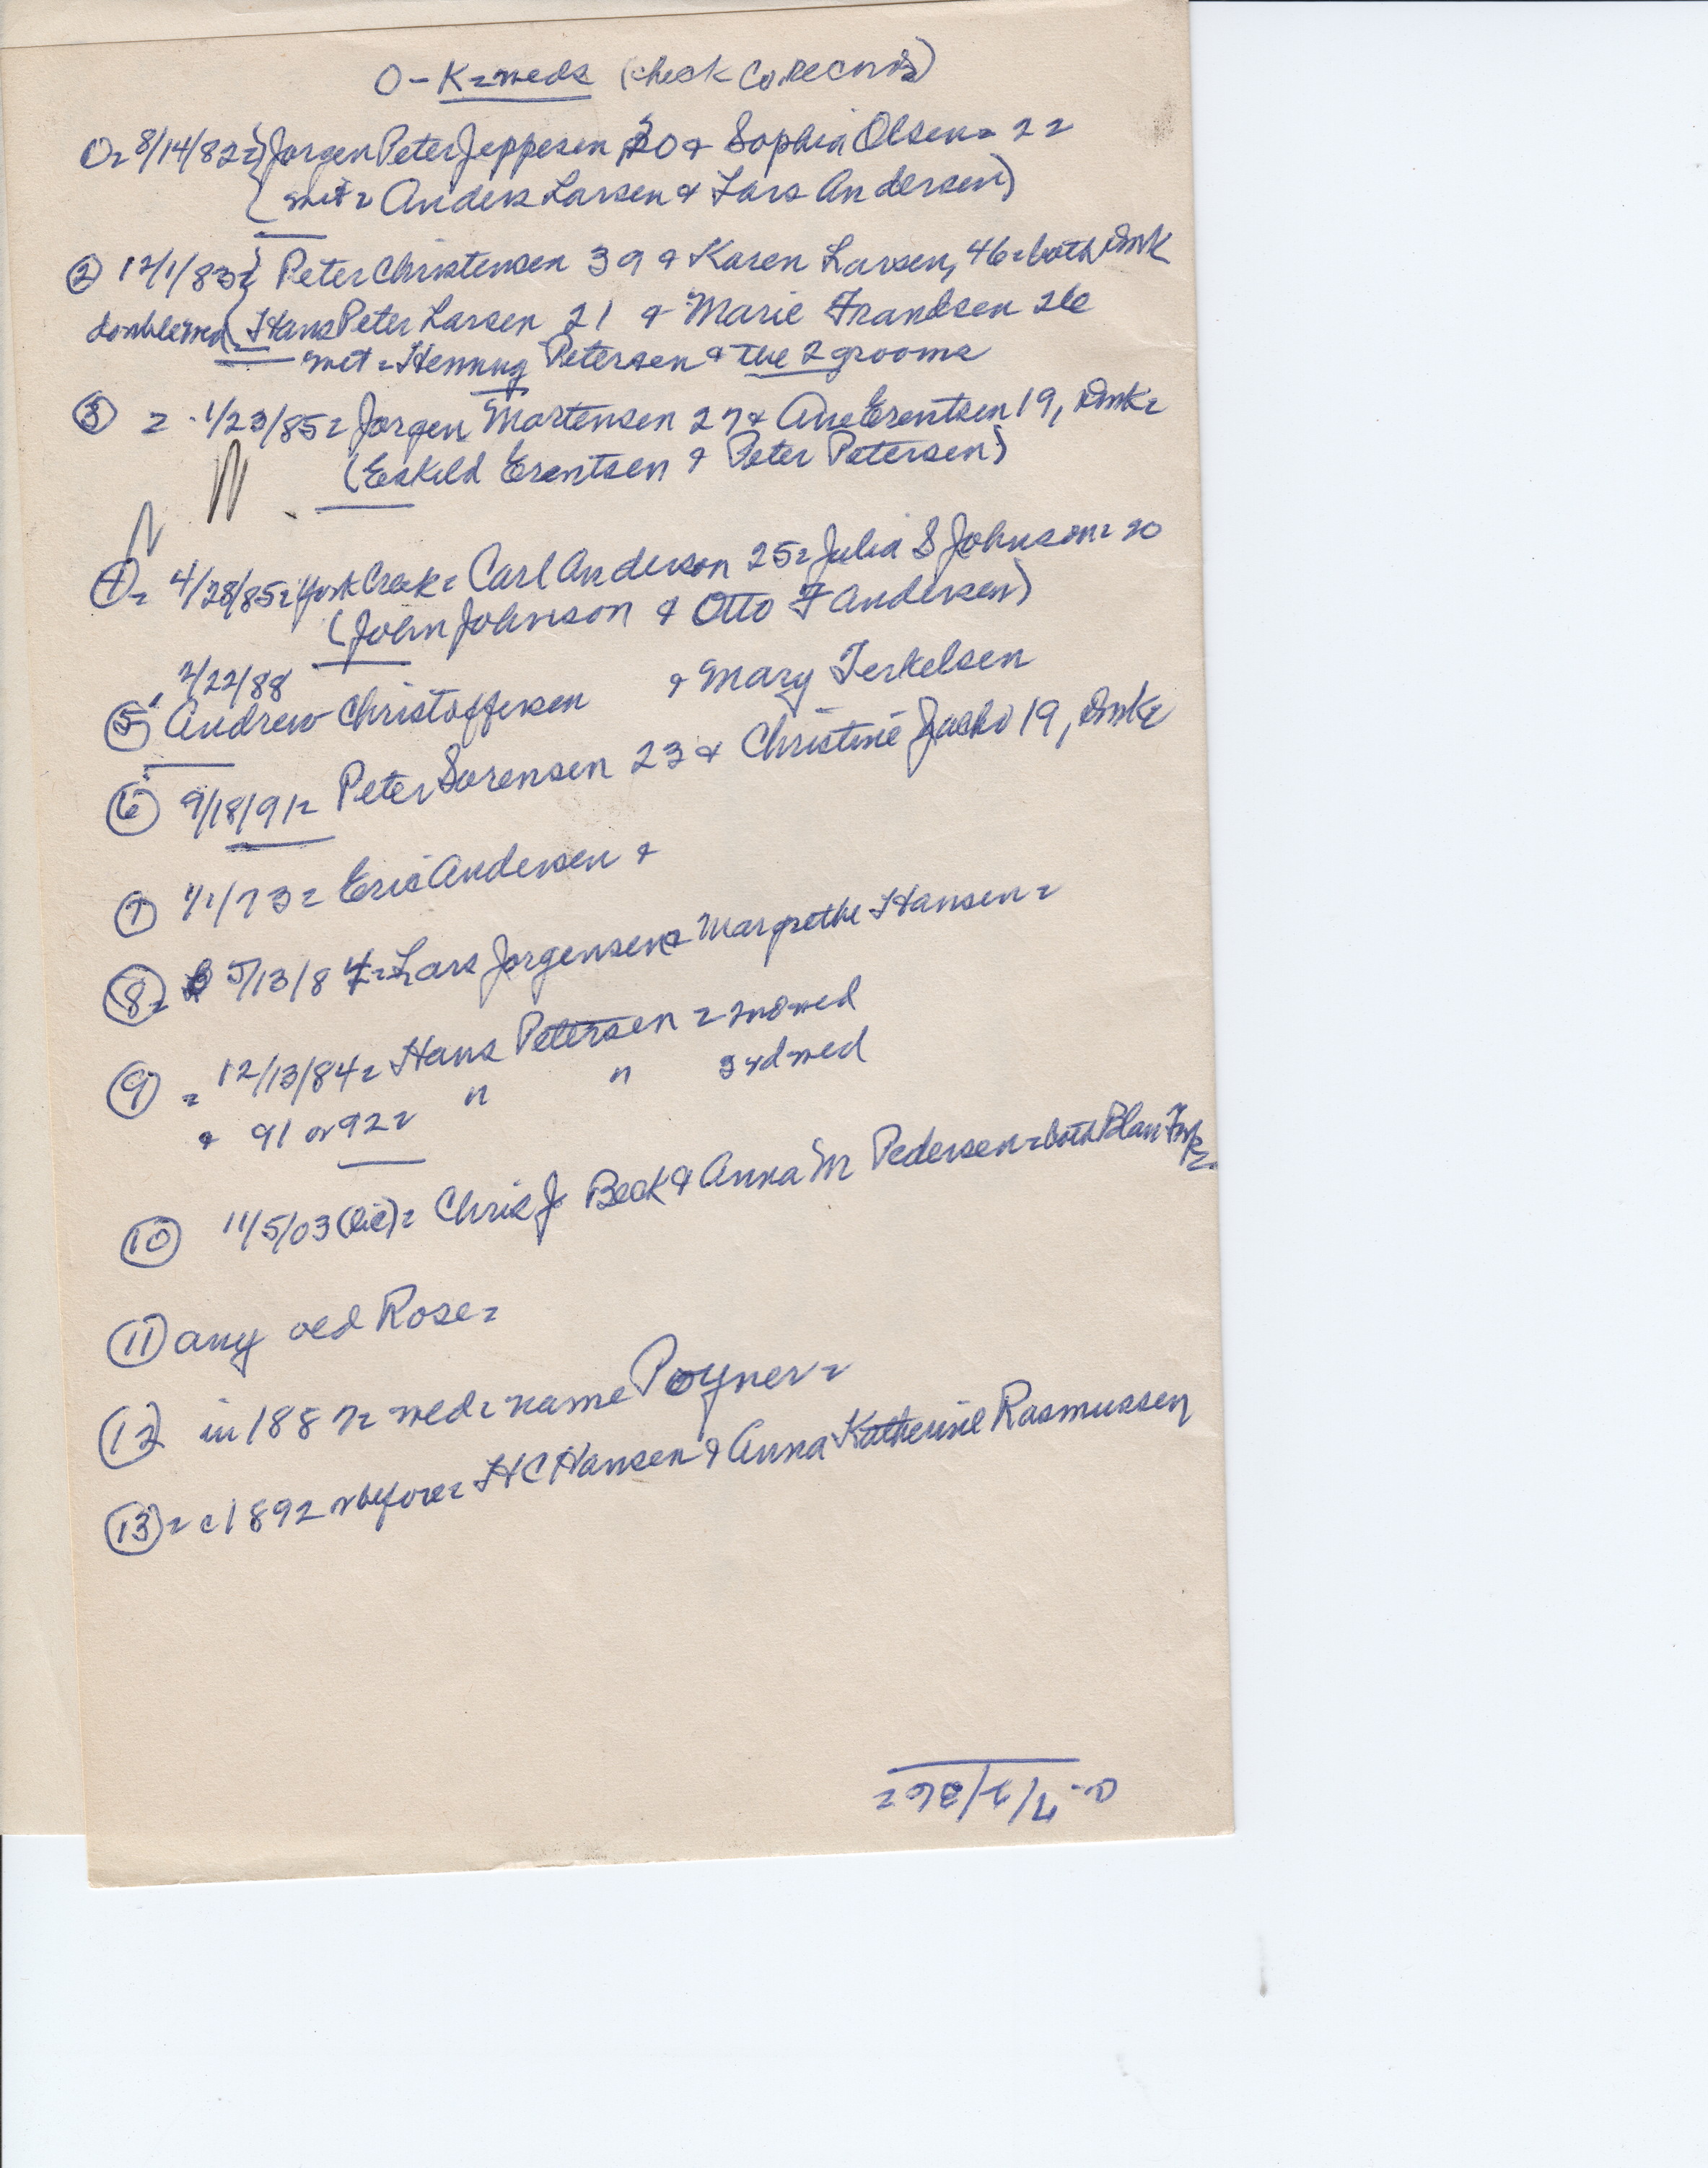 O-K=weds (check Co. Records)
① = 8/14/82 = { Jorgen Peter Jeppesen 30 & Sophia Olsen = 22
{ wit = Anders Larsen & Lars Andersen)
② 12/1/83 = { Peter Christensen 39 & Karen Larsen, 46 = both Dmk
double wed { Hans Peter Larsen 21 & Marie Frandsen 26
wit = Henning Petersen & the 2 grooms
③ = 1/23/85 = Jorgen Mortensen 27 & Ane Erentsen 19, Dmk =
(Eskild Erentsen & Peter Petersen)
④ = 4/28/85 = York Creek = Carl Anderson 25 = Julia S Johnson = 20
(John Johnson & Otto F Andersen)
2/22/88
⑤ Andrew Christoffersen & Mary Terkelsen
⑥ 9/18/91 = Peter Sorensen 23 & Christine 19, Dmk =
⑦ 1/1/73 = Eric Andersen &
⑧ = 5/13/84 = Lars Jorgensen & Margrethe Hansen =
⑨ = 12/13/84 = Hans Petersen = 2nd wed
& 91 or 92 = " " 3rd wed
⑩ 11/5/03 (lic) = Chris J Beck & Anna M Pedersen = both
⑪ any old Rose =
⑫ in 1887 = wed = name Poyner =
⑬ = c1892 or before = HC Hansen & Anna Katherine Rasmussen